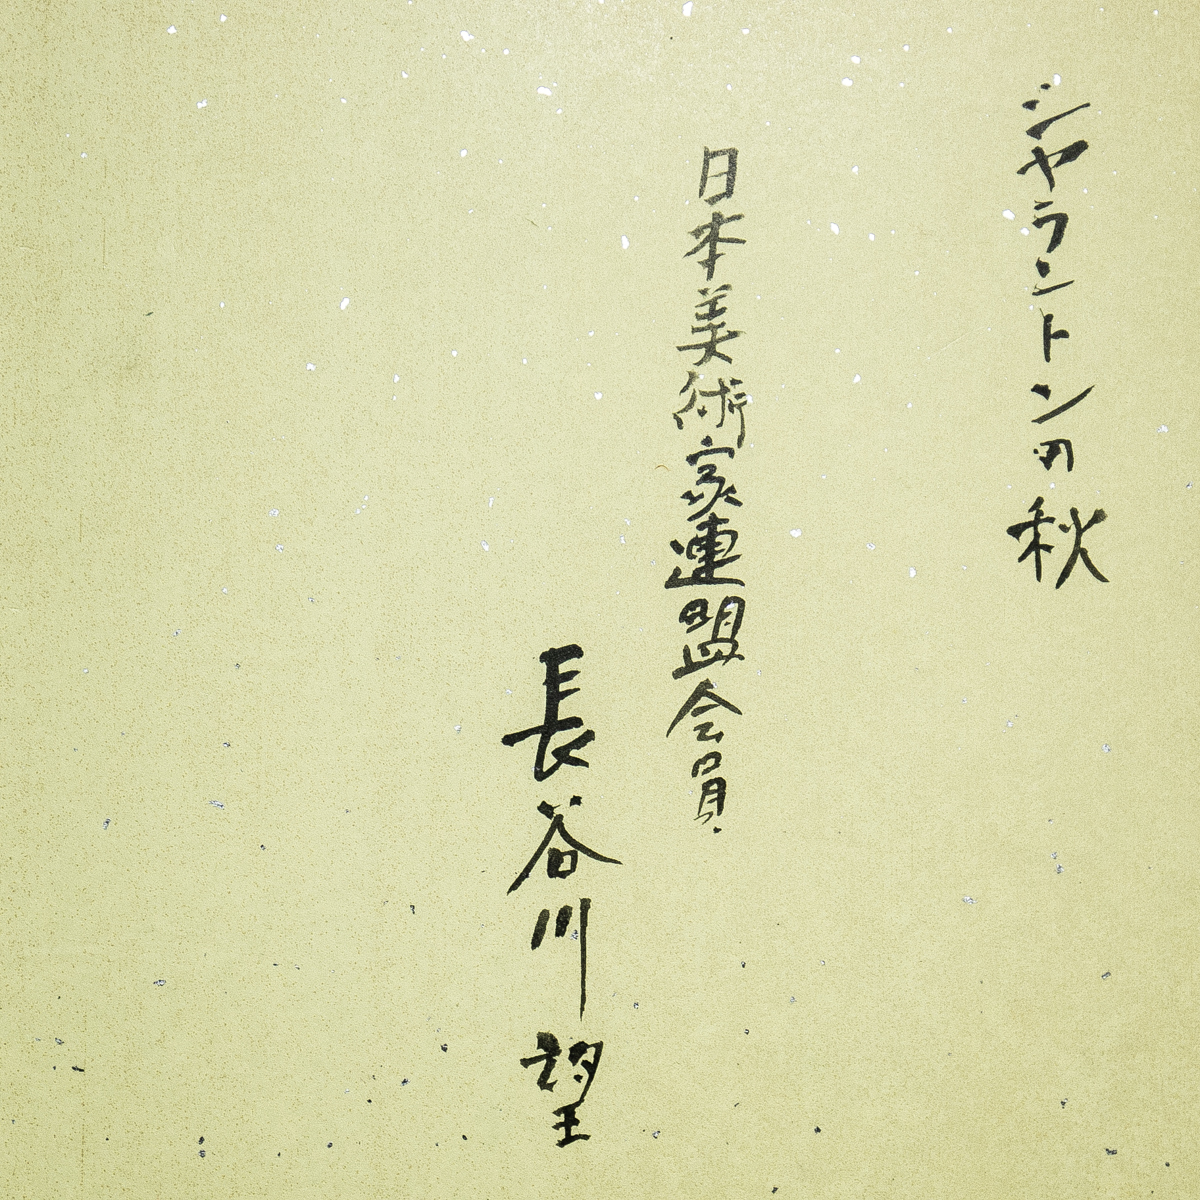 ジャラントンの秋
日本美術家連盟会員
長谷川望